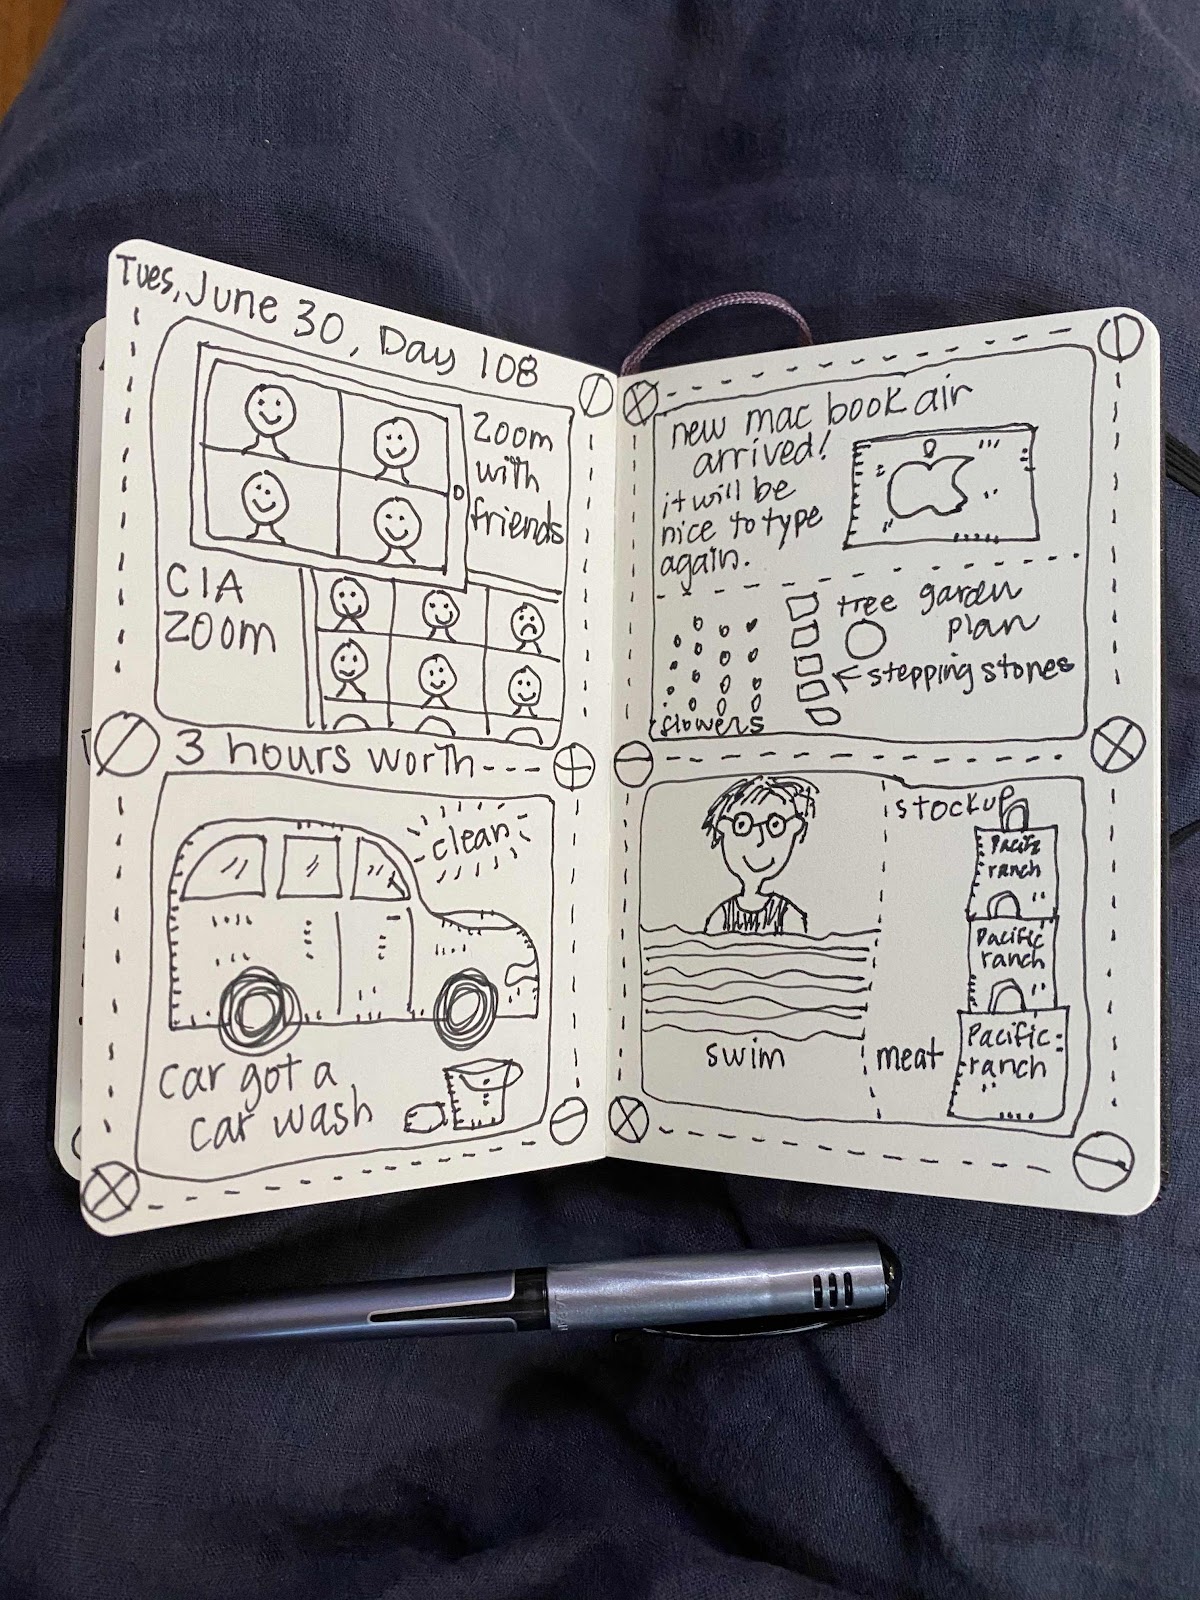 Tues, June 30, Day 108
Zoom
with
friends
CIA
Zoom
3 hours worth
clean
car got a
car wash
new mac book air
arrived!
it will be
nice to type
again.
tree garden
plan
stepping stones
flowers
swim
stockup
meat
Pacific
ranch
Pacific
ranch
Pacific
ranch